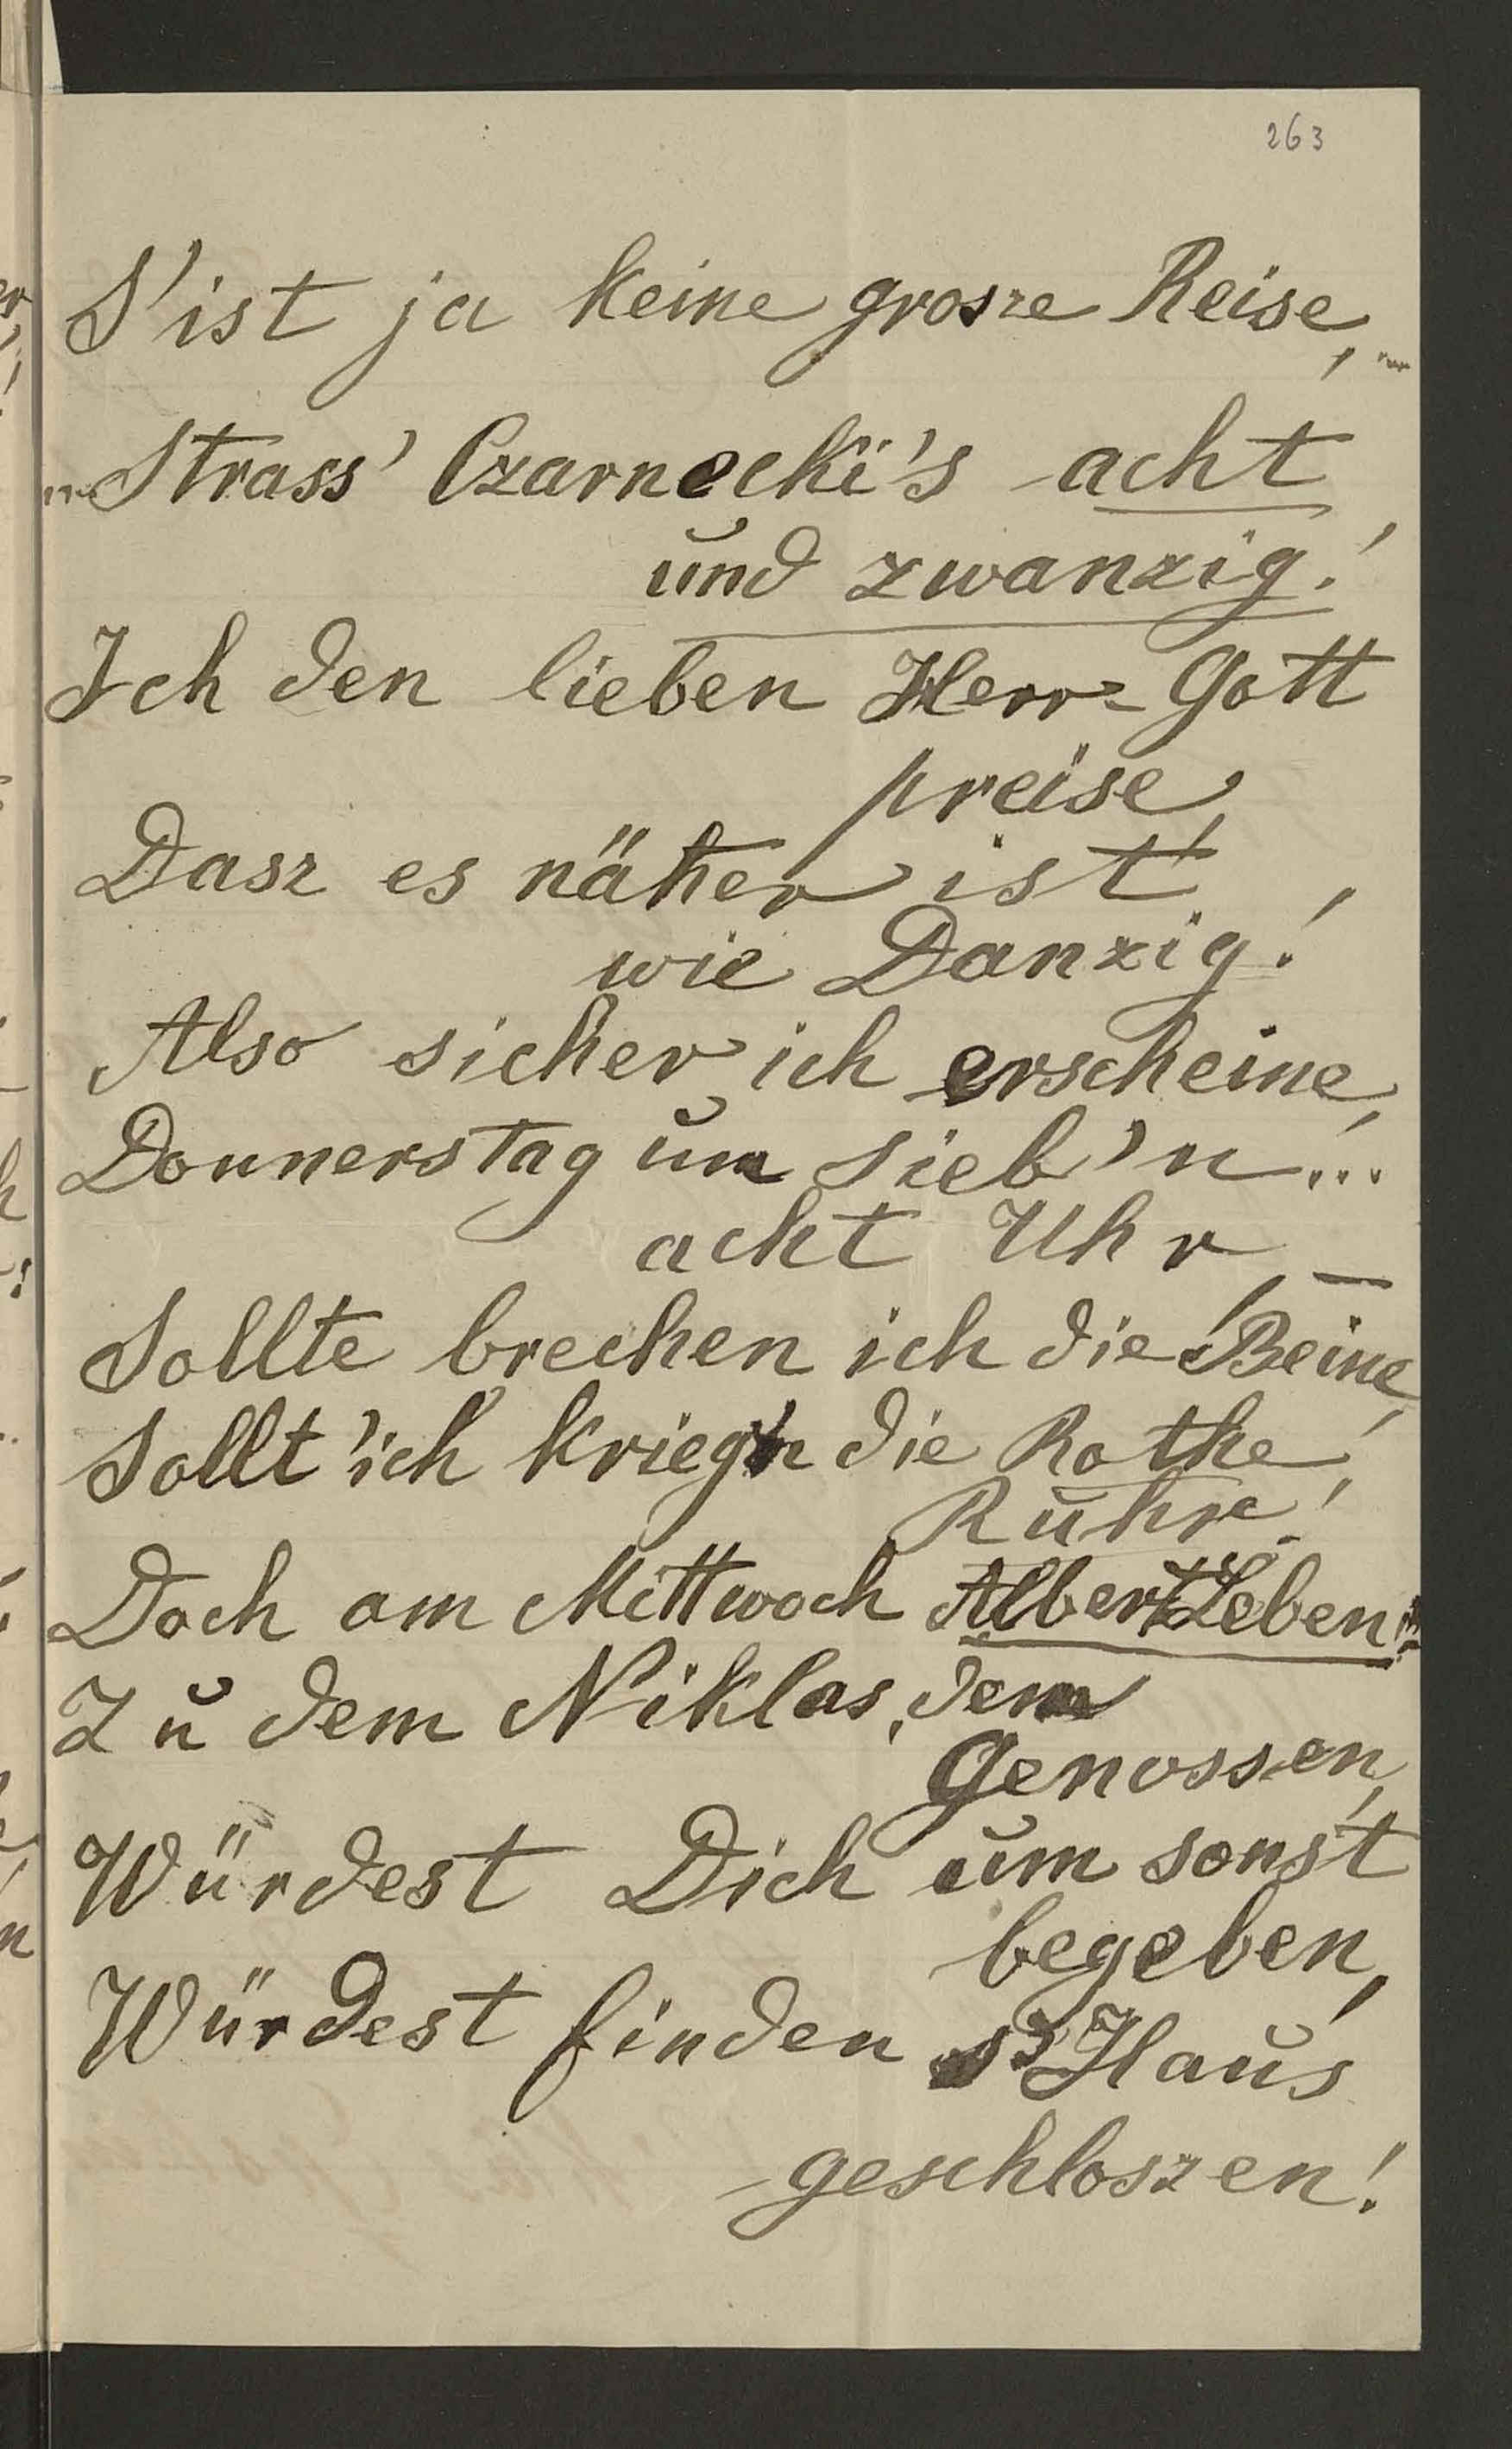 263
S'ist ja keine grosze Reise, „
„Strass' Czarnecki's acht
und zwanzig!
Ich den lieben Herr-Gott
preise,
Dasz es näher ist
wie Danzig!
Also sicher ich erscheine,
Donnerstag um sieb'n...
acht Uhr, —
Sollte brechen ich die Beine,
Sollt 'ich krieg'n die Rothe
Ruhr!
Doch am Mittwoch Albertleben
Zu dem Niklas, dem
Genossen,
Würdest Dich um sonst
begeben,
Würdest finden s'Haus
geschloszen!